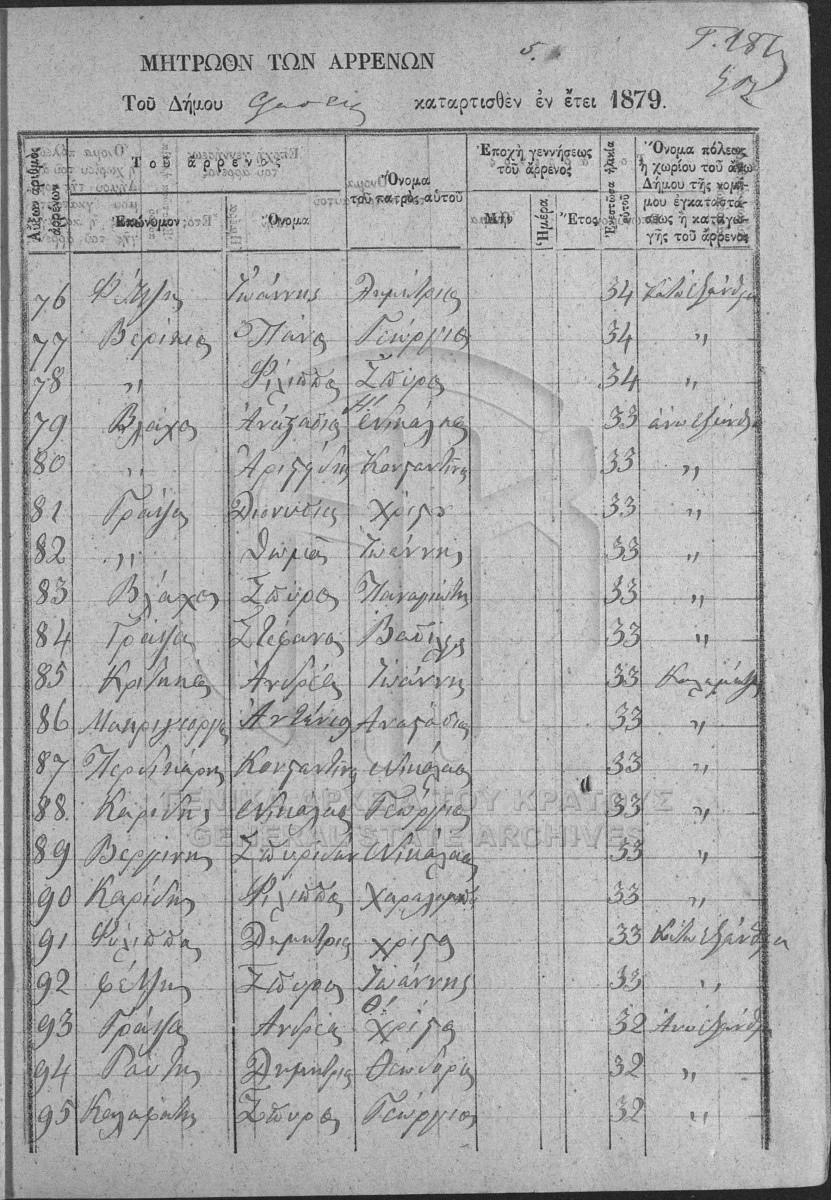 5.
ΜΗΤΡΩΟΝ ΤΩΝ ΑΡΡΕΝΩΝ
Τοῦ Δήμου καταρτισθὲν ἐν ἔτει 1879.
Αὔξων ἀριθμὸς ἀρρένων
Τοῦ ἄρρενος
Ἐπώνυμον
Ὄνομα
Ὄνομα τοῦ πατρὸς αὐτοῦ
Ἐποχὴ γεννήσεως τοῦ ἄρρενος
Μὴν
Ἡμέρα
Ἔτος
Ἐνεστῶσα ἡλικία αὐτοῦ
Ὄνομα πόλεως
ἢ χωρίου τοῦ ἄνω
Δήμου τῆς νομί-
μου ἐγκαταστά-
σεως ἢ καταγω-
γῆς τοῦ ἄρρενος
76 Φέτζης Ἰωάννης Δημήτριος 34 Κάτω Εξάνθια
77 Βερίκιος Πάνος Γεώργιος 34 〃
78 〃 Φίλιππος Σπύρος 34 〃
79 Βλάχος Ἀναστάσιος Νικόλαος 33 άνω Εξάνθια
80 〃 Ἀριστείδης Κονσταντῖνος 33 〃
81 Γράψας Διονύσιος Χρίστο 33 〃
82 〃 Θωμᾶς Ἰωάννης 33 〃
83 Βλάχος Σπύρος Παναγιώτης 33 〃
84 Γράψας Στέφανος Βασίλειος 33 〃
85 Κριτικὸς Ἀνδρέας Ἰωάννης 33
86 Ἀντώνιος Αναστάσιος 33 〃
87 Κονσταντῖνος Νικόλαος 33 〃
88 Καρίδης Νικόλαος Γεώργιος 33 〃
89 Βεργίνης Σπυρίδων Νικόλαος 33 〃
90 Καρίδης Φίλιππος Χαράλαμπος 33 〃
91 Φίλιππας Δημήτριος Χρίστος 33 Κάτω Εξάνθεια
92 Φέτζης Σπύρος Ἰωάννης 33 〃
93 Γράψας Ανδρέας Χρίστος 32 Ἄνω Εξάνθια
94 Δημήτριος Θεωδόρος 32 〃
95 Καλαφάτης Σπύρος Γεώργιος 32 〃
ΓΕΝΙΚΑ ΑΡΧΕΙΑ ΤΟΥ ΚΡΑΤΟΥΣ
GENERAL STATE ARCHIVES